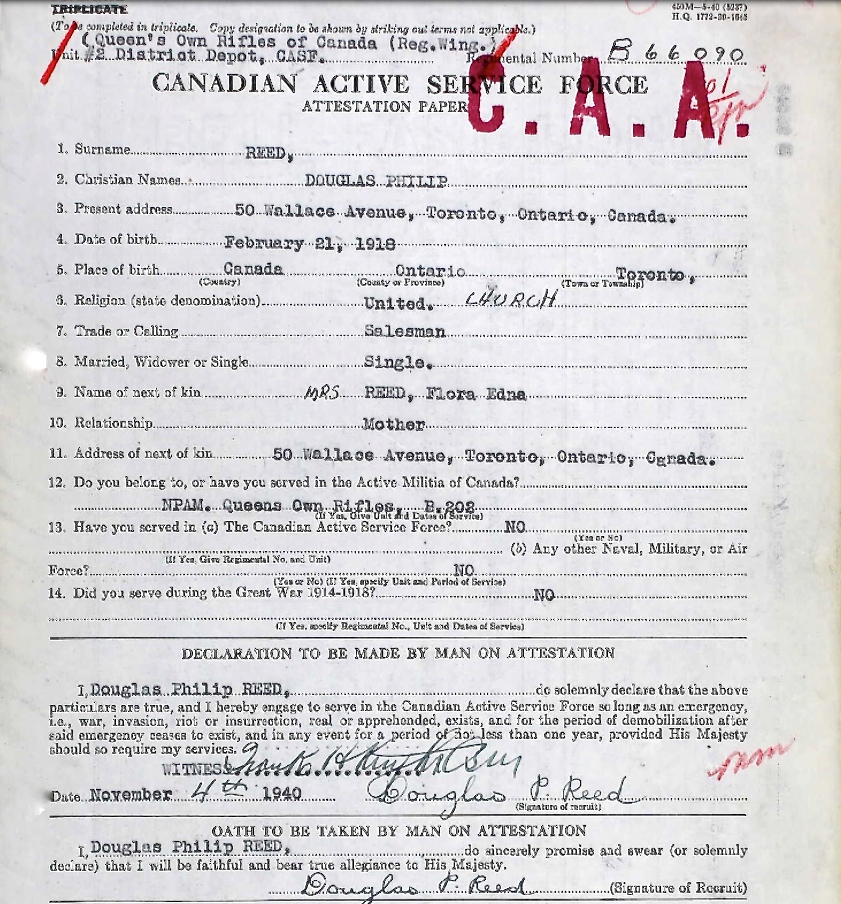 TRIPLICATE
450M—5-40 (5237)
H.Q. 1772-39-1645
(To be completed in triplicate. Copy designation to be shown by striking out terms not applicable.)
(Queen's Own Rifles of Canada (Reg.Wing.)
Unit #2 District Depot, CASF. Regimental Number B 66090
CANADIAN ACTIVE SERVICE FORCE
ATTESTATION PAPER
C. A. A.
1. Surname REED,
2. Christian Names DOUGLAS PHILIP
3. Present address 50 Wallace Avenue, Toronto, Ontario, Canada.
4. Date of birth February 21, 1918
5. Place of birth Canada Ontario Toronto,
(Country) (County or Province) (Town or Township)
6. Religion (state denomination) United. CHURCH
7. Trade or Calling Salesman
8. Married, Widower or Single Single.
9. Name of next of kin MRS REED, Flora Edna
10. Relationship Mother
11. Address of next of kin 50 Wallace Avenue, Toronto, Ontario, Canada.
12. Do you belong to, or have you served in the Active Militia of Canada?
NPAM. Queens Own Rifles, B.202
(If Yes, Give Unit and Dates of Service)
13. Have you served in (a) The Canadian Active Service Force? NO
(Yes or No)
(b) Any other Naval, Military, or Air
(If Yes, Give Regimental No. and Unit)
Force? NO
(Yes or No) (If Yes, specify Unit and Period of Service)
14. Did you serve during the Great War 1914-1918? NO
(If Yes, specify Regimental No., Unit and Dates of Service)
DECLARATION TO BE MADE BY MAN ON ATTESTATION
I, Douglas Philip REED, do solemnly declare that the above
particulars are true, and I hereby engage to serve in the Canadian Active Service Force so long as an emergency,
i.e., war, invasion, riot or insurrection, real or apprehended, exists, and for the period of demobilization after
said emergency ceases to exist, and in any event for a period of not less than one year, provided His Majesty
should so require my services.
WITNESS
Date November 4th 1940 Douglas P. Reed
(Signature of recruit)
OATH TO BE TAKEN BY MAN ON ATTESTATION
I, Douglas Philip REED, do sincerely promise and swear (or solemnly
declare) that I will be faithful and bear true allegiance to His Majesty.
Douglas P. Reed (Signature of Recruit)